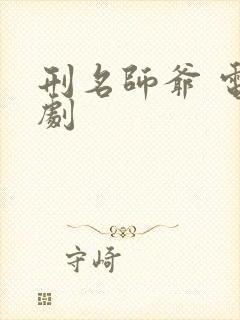 刑名師爺 電
劇
守崎